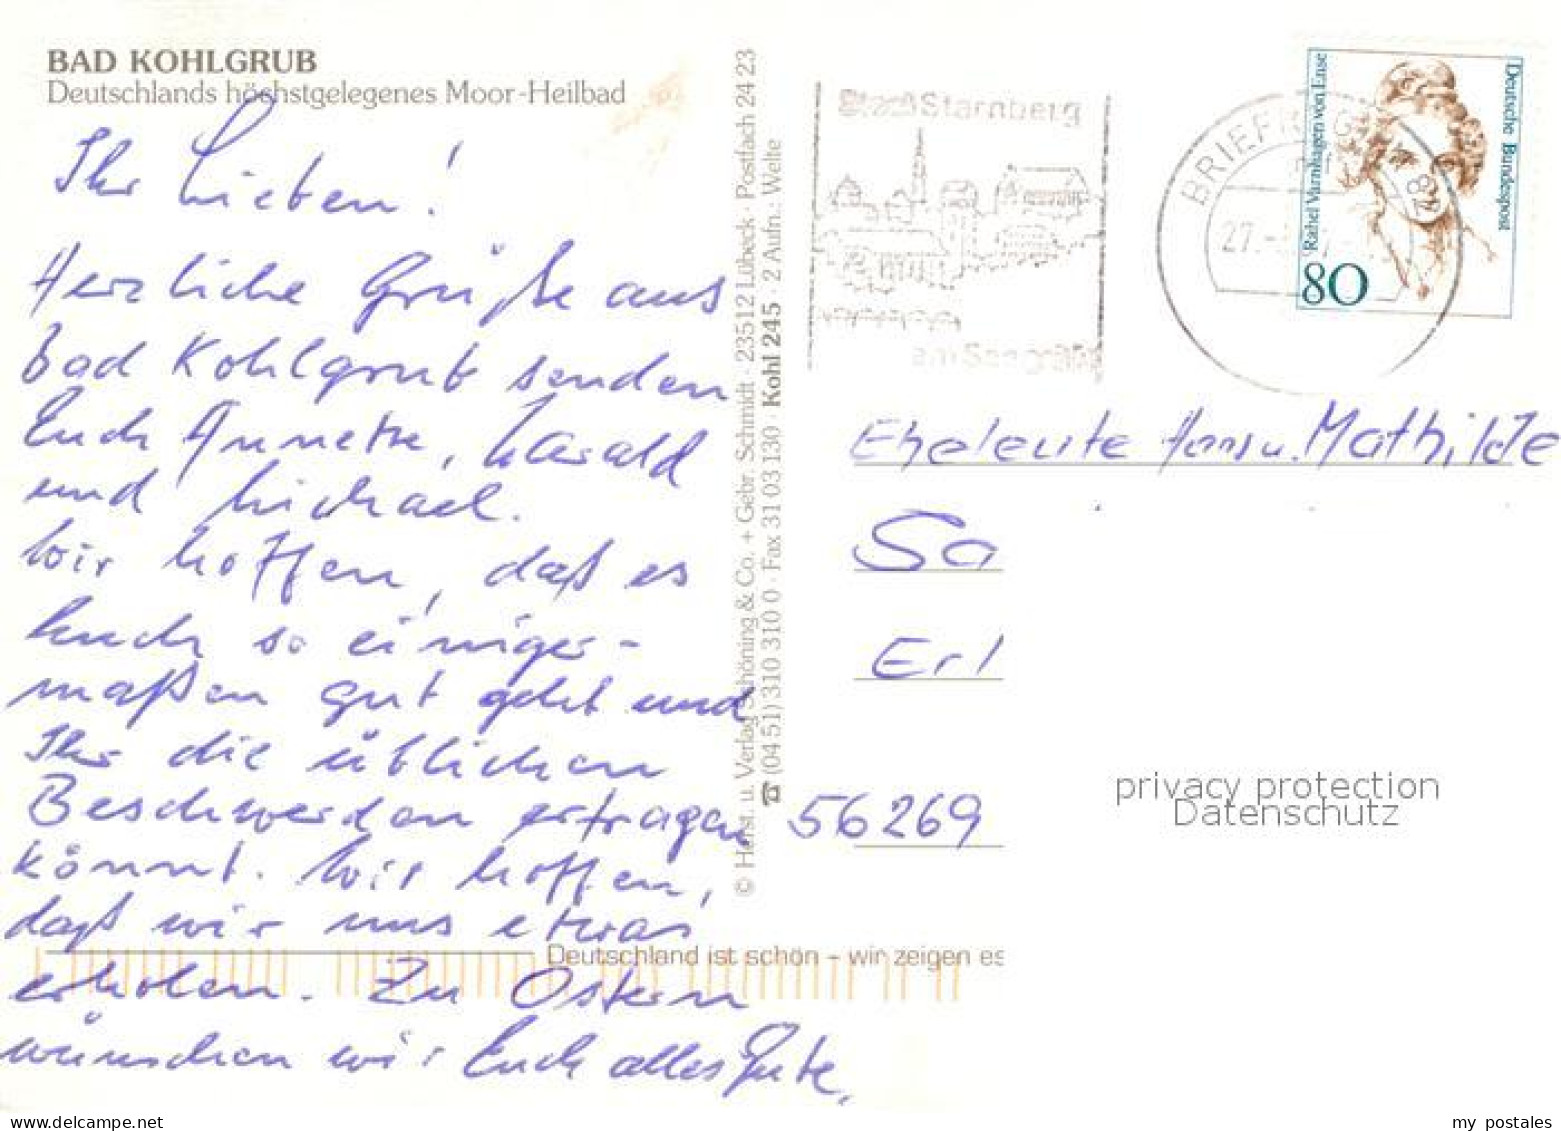 BAD KOHLGRUB
Deutschlands höchstgelegenes Moor-Heilbad
Ihr Lieben!
Herzliche Grüße aus
Bad Kohlgrub senden
Euch Annette, Harald
und Michael.
Wir hoffen, daß es
Euch so einiger-
maßen gut geht und
Ihr die üblichen
Beschwerden ertragen
könnt. Wir hoffen,
daß wir uns etwas
erholen. Zu Ostern
wünschen wir Euch alles Gute.
© Horst. u. Verlag Schöning & Co. + Gebr. Schmidt · 23512 Lübeck · Postfach 24 23
☎ (04 51) 310 310 0 · Fax 31 03 130 · Kohl 245 · 2 Aufn.: Welte
Deutschland ist schön – wir zeigen es
Stadt Starnberg
am See
BRIEFREG
27.
Rahel Varnhagen von Ense
Deutsche Bundespost
80
Eheleute Hans u. Mathilde
Sa
Erl
56269
privacy protection
Datenschutz
delcampe.net
my_postales